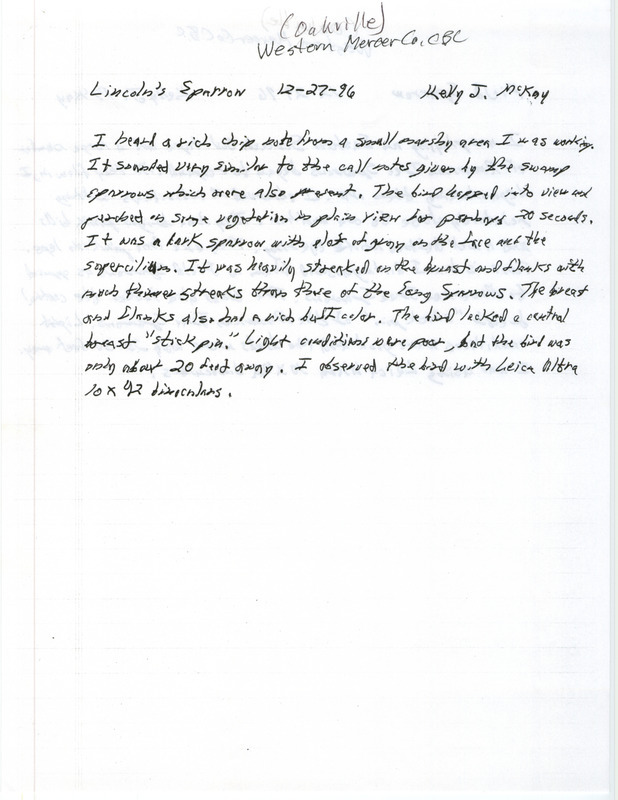 (Oakville)
Western Mercer Co. CBC
Lincoln's Sparrow 12-27-96 Kelly J. McKay
I heard a rich chip note from a small marshy area I was working.
It sounded very similar to the call notes given by the swamp
sparrows which were also present. The bird hopped into view and
perched on some vegetation in plain view for perhaps 20 seconds.
It was a dark sparrow with a lot of gray on the face and the
supercilium. It was heavily streaked on the breast and flanks with
much thinner streaks than those of the Song Sparrows. The breast
and flanks also had a rich buff color. The bird lacked a central
breast "stick pin." Light conditions were poor, but the bird was
only about 20 feet away. I observed the bird with Leica Ultra
10 x 42 binoculars.